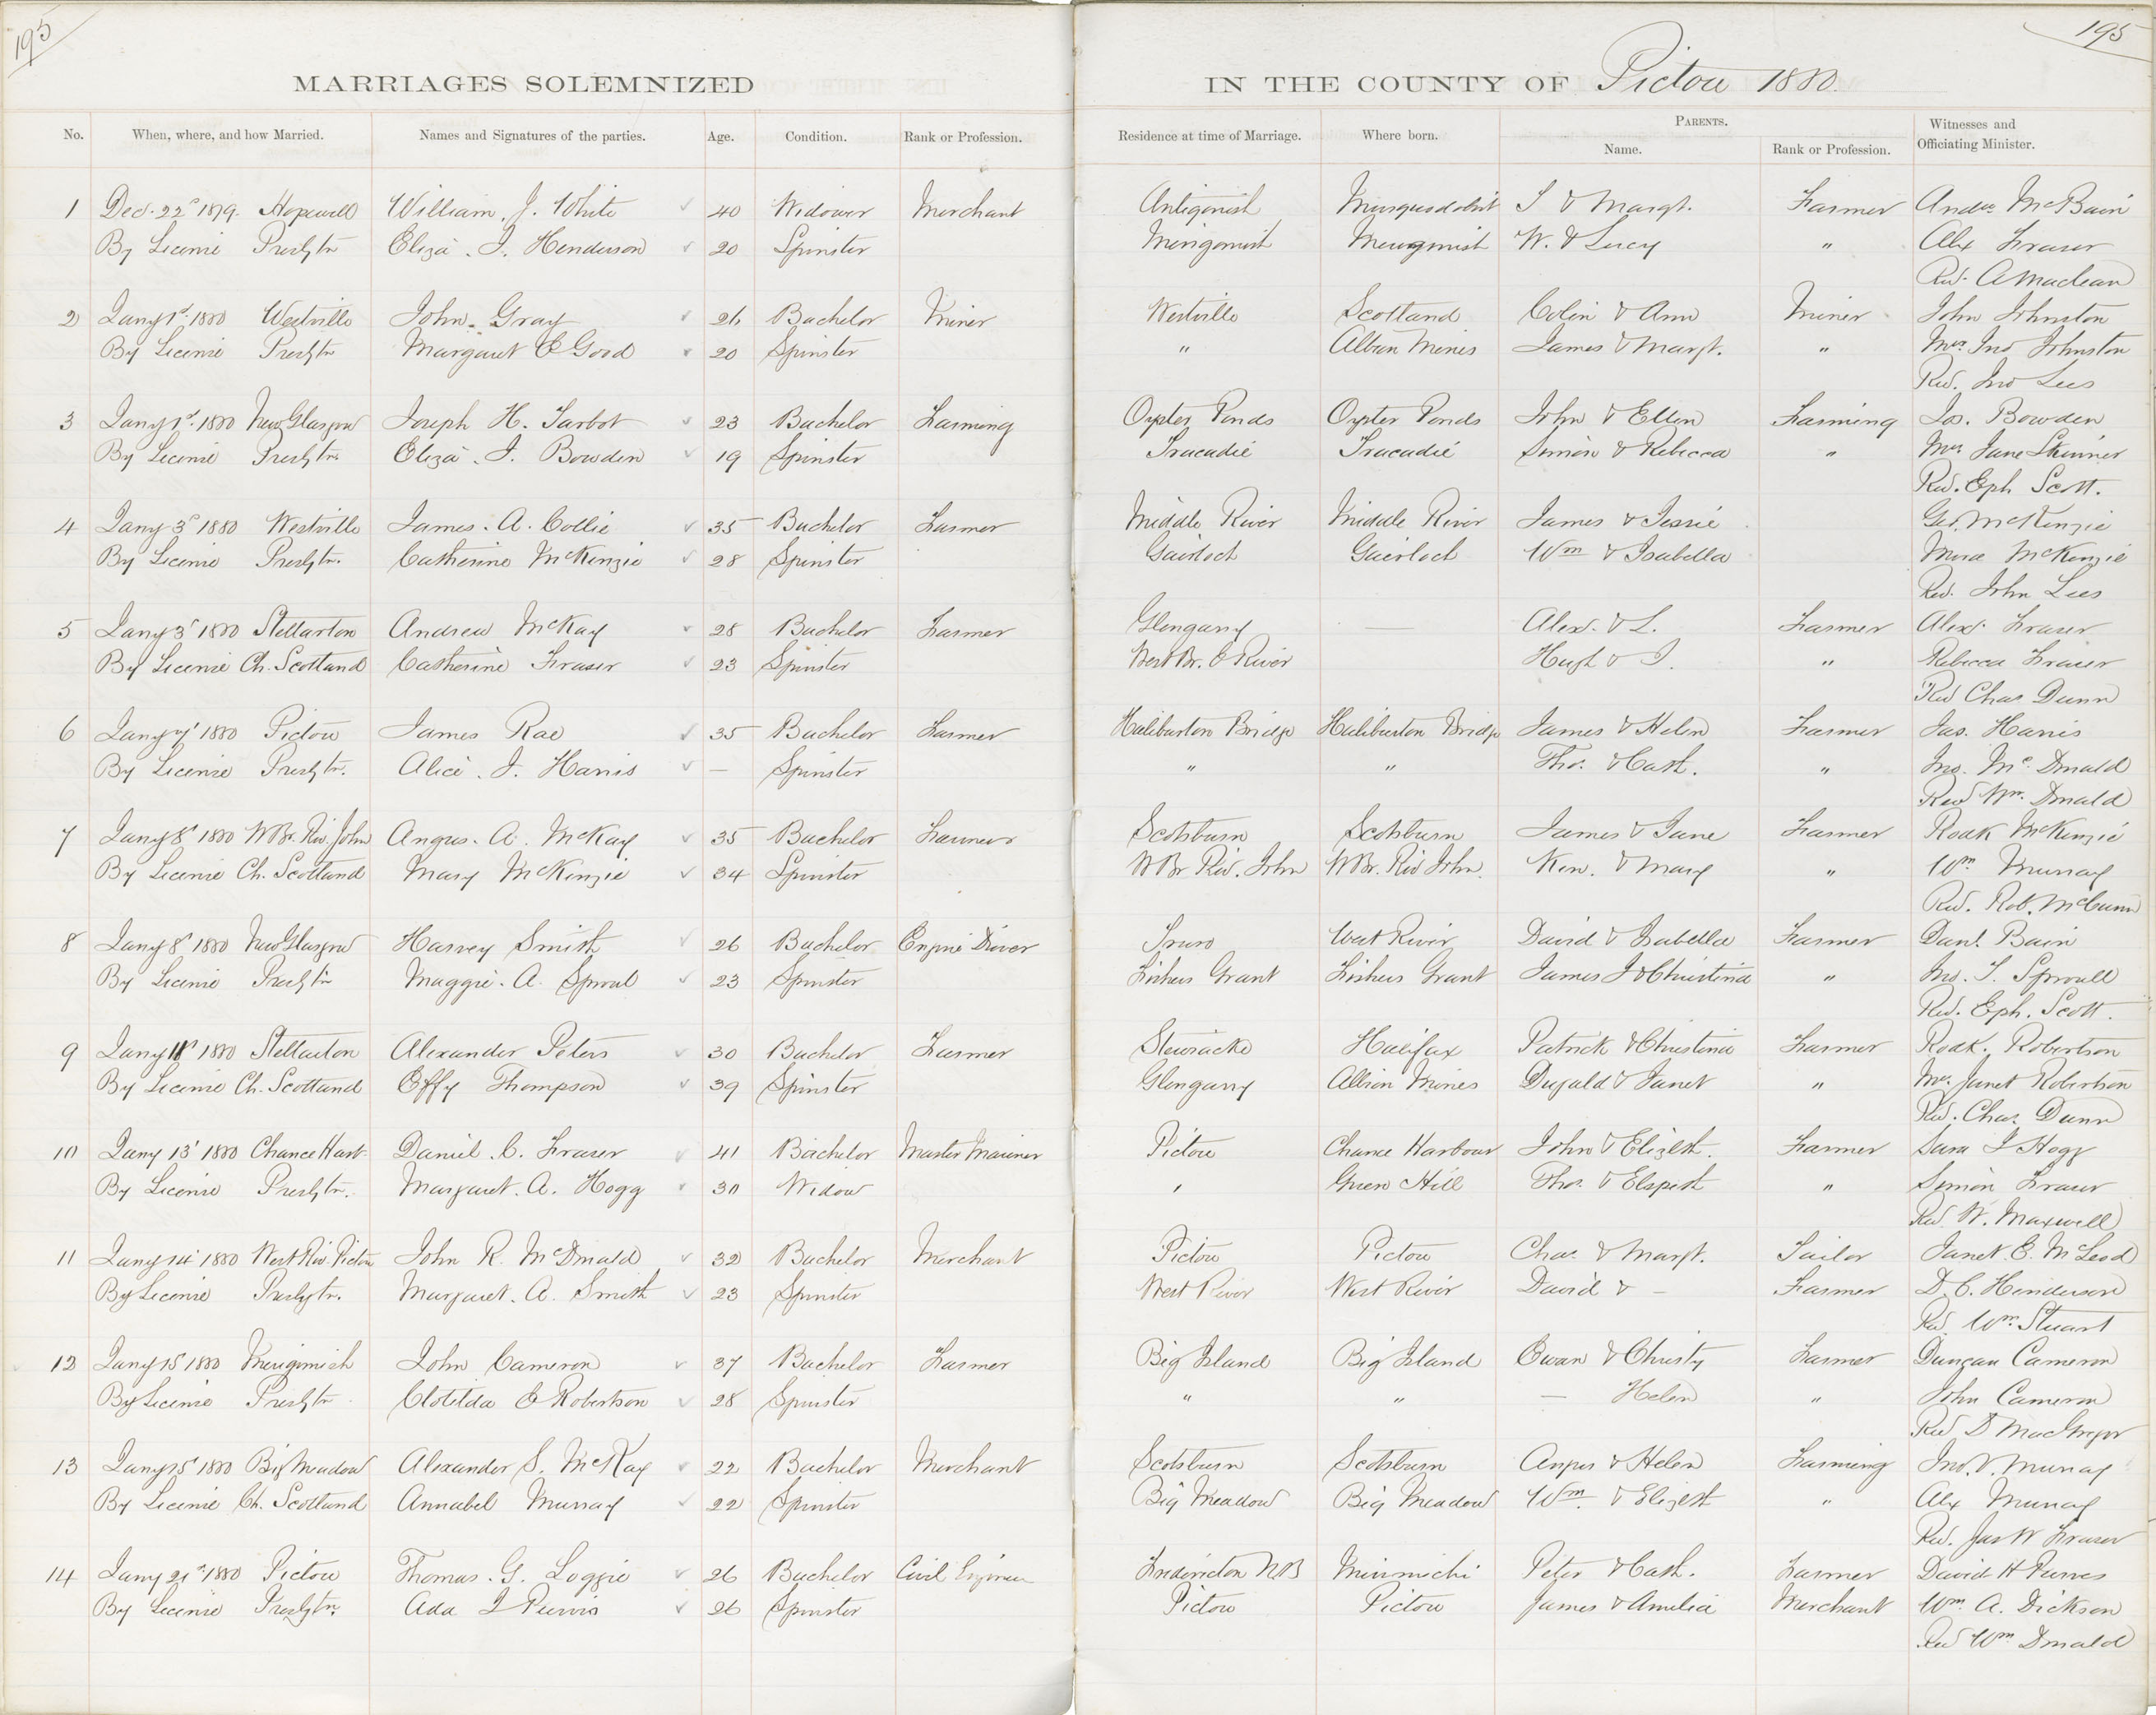 195
195
MARRIAGES SOLEMNIZED IN THE COUNTY OF Pictou 1880.
No. When, where, and how Married. Names and Signatures of the parties. Age. Condition. Rank or Profession. Residence at time of Marriage. Where born. PARENTS. Name. Rank or Profession. Witnesses and Officiating Minister.
1 Dec. 22d 1879. Hopewell William. J. White 40 Widower Merchant Antigonish Musquodobit J & Margt. Farmer Andw McBain
By License Presbytn Eliza. J. Henderson 20 Spinster Merigomish Merigomish W. & Lucy " Alex Fraser
Rev. A Maclean
2 Jany 1st 1880 Westville John. Gray 26 Bachelor Miner Westville Scotland Colin & Ann Miner John Johnston
By License Presbytn Margaret E Good 20 Spinster " Albion Mines James & Margt. " Mrs. Jno Johnston
Rev. Jno Lees
3 Jany 1st 1880 New Glasgow Joseph H. Tarbot 23 Bachelor Farming Oyster Ponds Oyster Ponds John & Ellen Farming Jos. Bowden
By License Presbytn. Eliza. J. Bowden 19 Spinster Tracadie Tracadie Simon & Rebecca " Mrs Jane Skinner
Rev. Eph Scott.
4 Jany 3d 1880 Westville James. A. Collie 35 Bachelor Farmer Middle River Middle River James & Jessie Geo. McKenzie
By License Presbytn. Catherine McKenzie 28 Spinster Gairloch Gairloch Wm & Isabella McKenzie
Rev. John Lees
5 Jany 3d 1880 Stellarton Andrew McKay 28 Bachelor Farmer Glengarry — Alex. & L. Farmer Alex. Fraser
By License Ch. Scotland Catherine Fraser 23 Spinster West Br. E River Hugh & J. " Rebecca Fraser
Rev Chas Dunn
6 Jany 7' 1880 Pictou James Rae 35 Bachelor Farmer Haliburton Bridge Haliburton Bridge James & Helen Farmer Jas. Harris
By License Presbytn. Alice. J. Harris — Spinster " " Thos. & Cath. " Jno. McDonald
Rev Wm. Donald
7 Jany 8' 1880 W Br. Riv. John Angus. A. McKay 35 Bachelor Farmer Scotsburn Scotsburn James & Jane Farmer Rodk McKenzie
By License Ch. Scotland Mary McKenzie 34 Spinster W Br Riv. John W Br. Riv John. Ken. & Mary " Wm Murray
Rev. Rob. McCunn
8 Jany 8' 1880 New Glasgow Harvey Smith 26 Bachelor Engine Driver Truro West River David & Isabella Farmer Danl. Bain
By License Presbytn Maggie. A. Sproul 23 Spinster Fishers Grant Fishers Grant James J & Christina " Jno. T. Sproull
Rev. Eph. Scott.
9 Jany 1880 Stellarton Alexander Peters 30 Bachelor Farmer Stewiacke Halifax Patrick & Christina Farmer Rodk. Robertson
By License Ch. Scotland Effy Thompson 39 Spinster Glengarry Albion Mines Dugald & Janet " Mrs. Janet Robertson
Rev. Chas. Dunn
10 Jany 13' 1880 Chance Harb. Daniel. C. Fraser 41 Bachelor Master Mariner Pictou Chance Harbour John & Elizbth. Farmer Sara J Hogg
By License Presbytn. Margaret. A. Hogg 30 Widow " Green Hill Thos. & Elspeth " Simon Fraser
Rev. W. Maxwell
11 Jany 14' 1880 West Riv. Pictou John R. McDonald 32 Bachelor Merchant Pictou Pictou Chas. & Margt. Tailor Janet. E. McLeod
By License Presbytn. Margaret. A. Smith 23 Spinster West River West River David & — Farmer D. C. Henderson
Rev. Wm. Stuart
12 Jany 15 1880 Merigomish John Cameron 37 Bachelor Farmer Big Island Big Island Ewan & Christy Farmer Duncan Cameron
By License Presbytn Clotilda E Robertson 28 Spinster " " — Helen " John Cameron
Rev D MacGregor
13 Jany 15' 1880 Big Meadow Alexander S. McKay 22 Bachelor Merchant Scotsburn Scotsburn Angus & Helen Farming Jno. D. Murray
By License Ch. Scotland Annabel Murray 22 Spinster Big Meadow Big Meadow Wm. & Elizbth " Alex Murray
Rev. Jas W Fraser
14 Jany 21st 1880 Pictou Thomas. G. Loggie 26 Bachelor Civil Engineer Fredericton N.B Mirimichi Peter & Cath. Farmer David H Purves
By License Presbytn. Ada J Purvis 26 Spinster Pictou Pictou James & Amelia Merchant Wm. A. Dickson
Rev Wm Donald